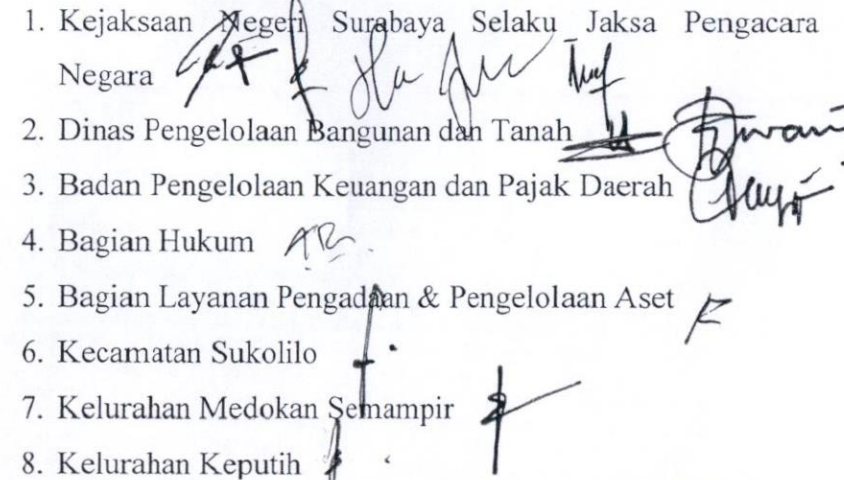 1. Kejaksaan Negeri Surabaya Selaku Jaksa Pengacara
Negara
2. Dinas Pengelolaan Bangunan dan Tanah
3. Badan Pengelolaan Keuangan dan Pajak Daerah
4. Bagian Hukum
5. Bagian Layanan Pengadaan & Pengelolaan Aset
6. Kecamatan Sukolilo
7. Kelurahan Medokan Semampir
8. Kelurahan Keputih